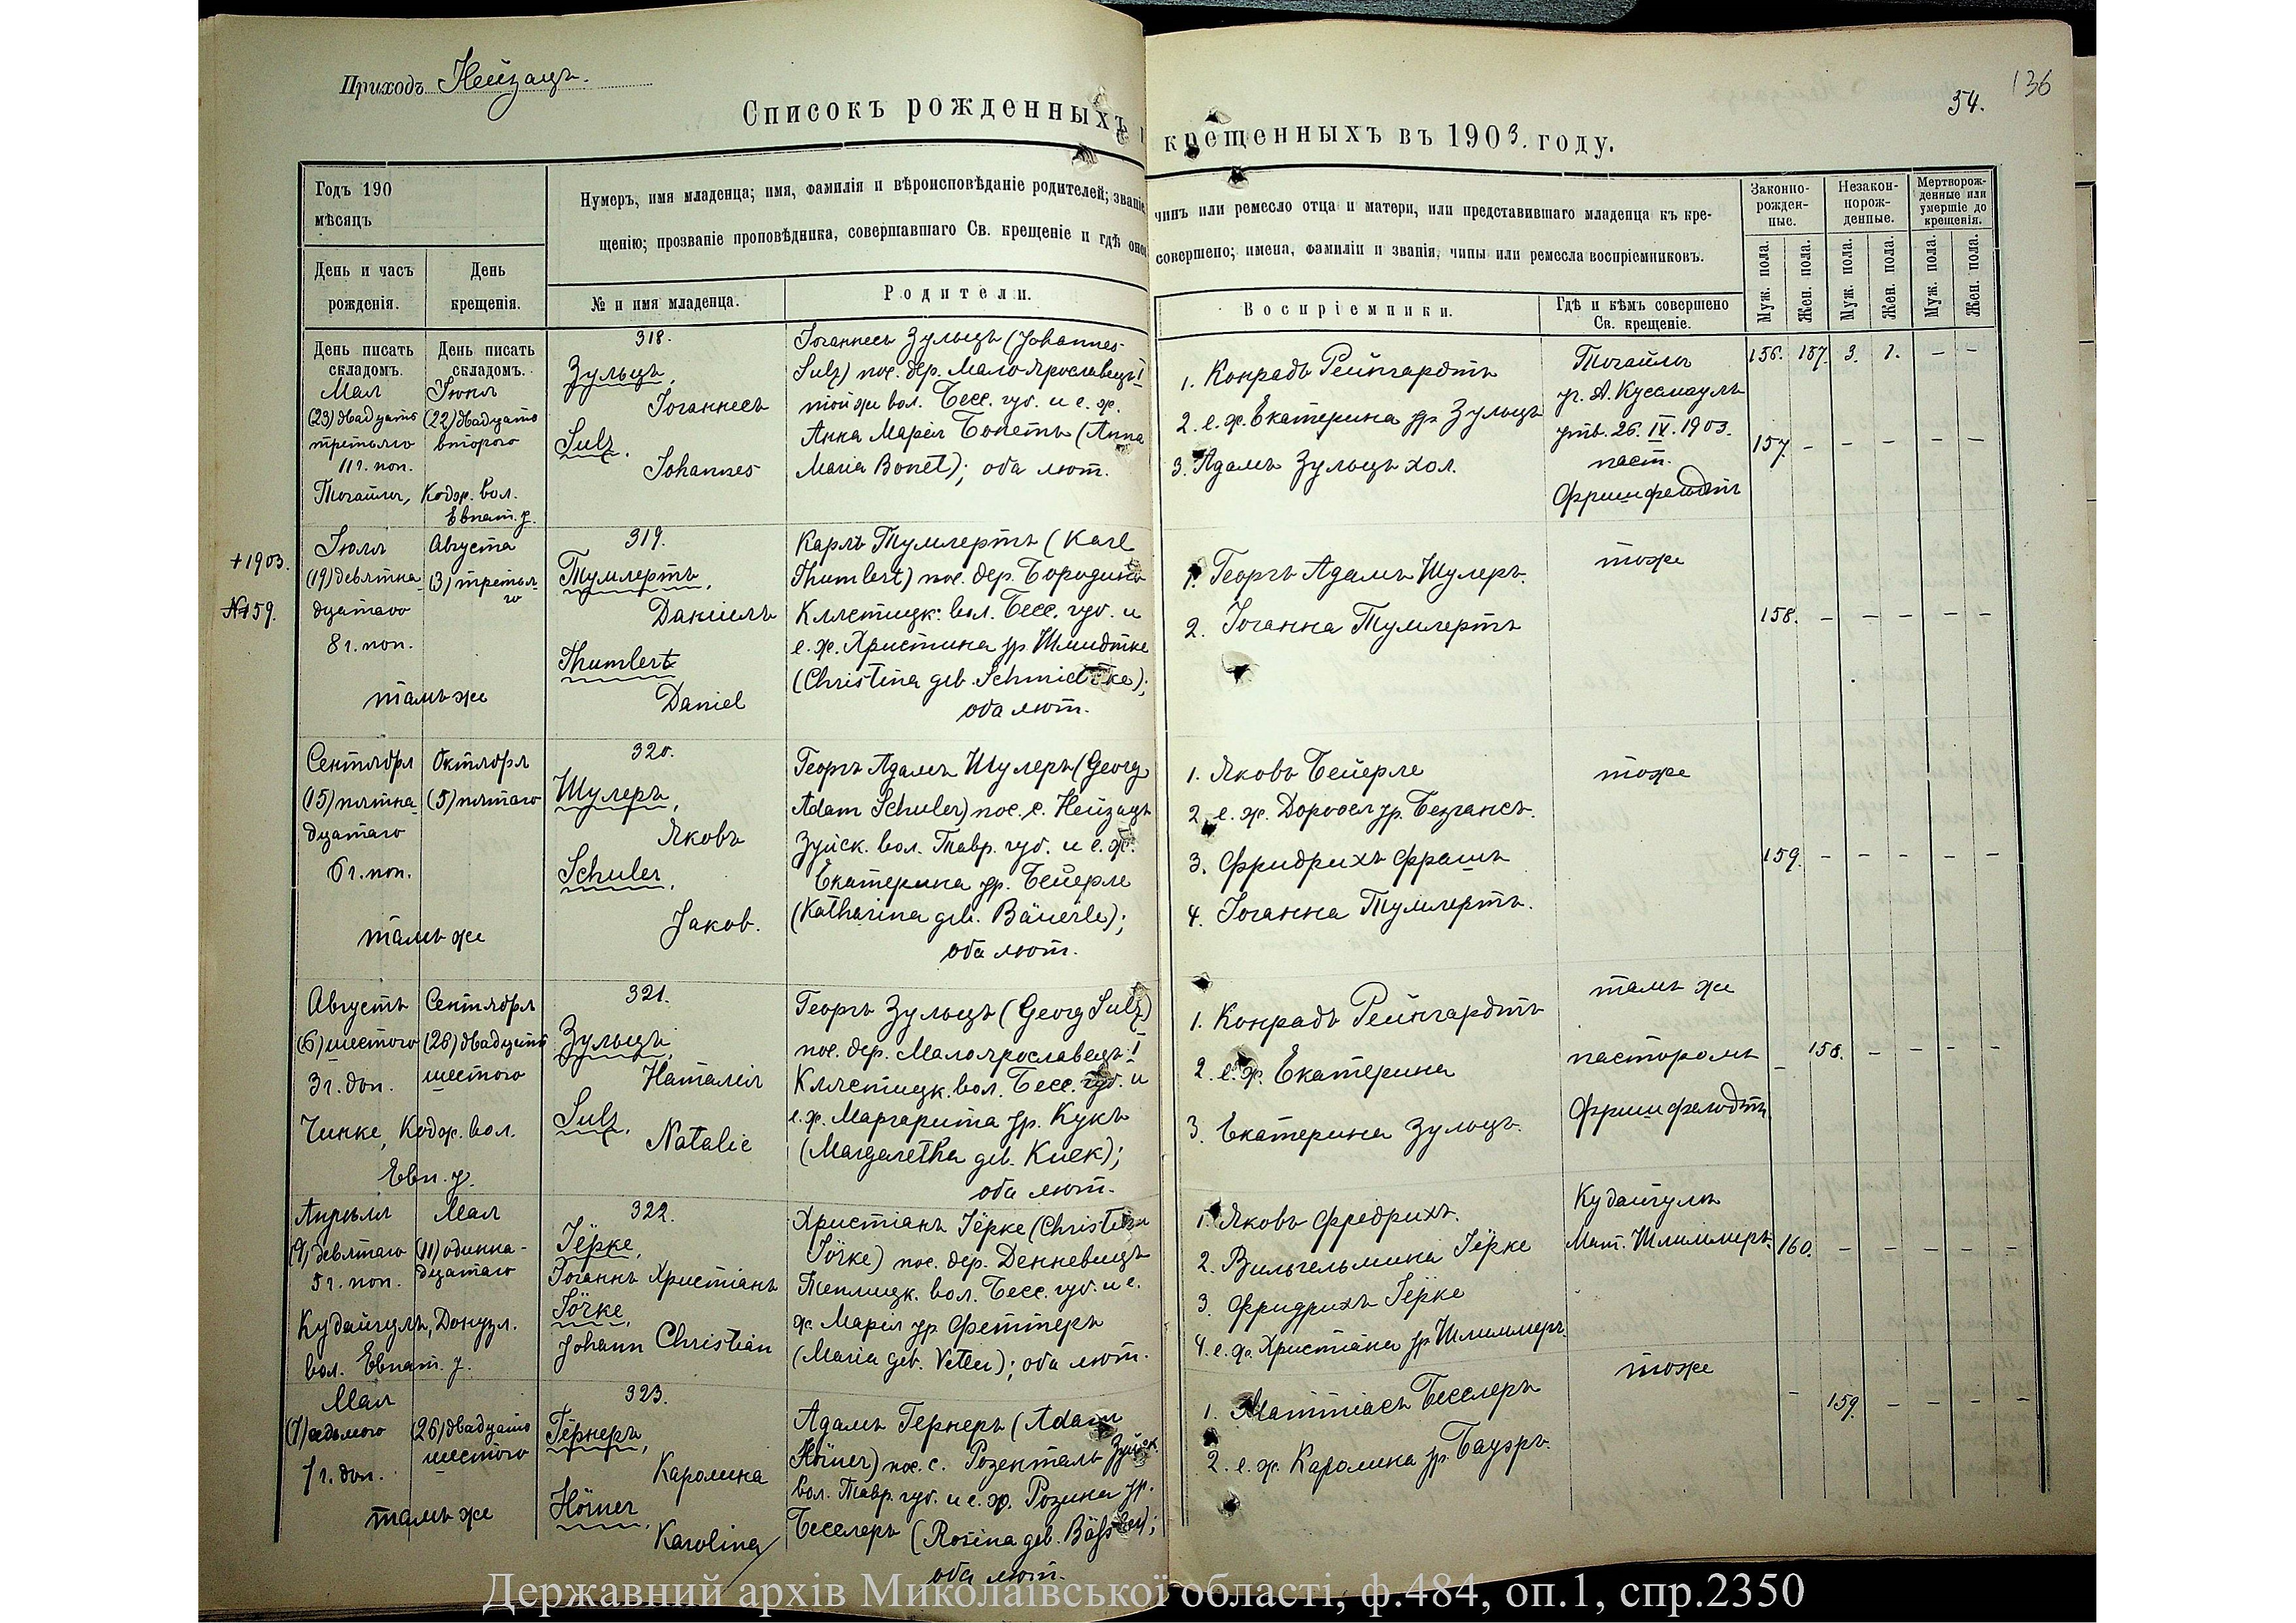 Приходъ Нейзацъ.
136
54.
Списокъ рожденныхъ и крещенныхъ въ 1903. году.
Годъ 190
мѣсяцъ
День и часъ
рожденія.
День
крещенія.
Нумеръ, имя младенца; имя, фамилія и вѣроисповѣданіе родителей; званіе
чинъ или ремесло отца и матери, или представившаго младенца къ кре-
щенію; прозваніе проповѣдника, совершавшаго Св. крещеніе и гдѣ оное
совершено; имена, фамиліи и званія, чины или ремесла воспріемниковъ.
№ и имя младенца.
Родители.
Воспріемники.
Гдѣ и кѣмъ совершено
Св. крещеніе.
Законно-
рожден-
ные.
Незакон-
норож-
денные.
Мертворож-
денные или
умершіе до
крещенія.
Муж. пола.
Жен. пола.
Муж. пола.
Жен. пола.
Муж. пола.
Жен. пола.
День писать
складомъ.
День писать
складомъ.
Мая
(23) двадцать
третьяго
11 г. поп.
Іюня
(22) двадцать
второго
Тогайлы, Кодж. вол.
Евпат. у.
318.
Зульцъ,
Іоганнесъ
Sulz,
Johannes
Іоганнесъ Зульцъ (Johannes
Sulz) пос. дер. МалоЯрославецъ I
той же вол. Бесс. губ. и е. ж.
Анна Марія Бонетъ (Anna
Maria Bonet); оба лют.
1. Конрадъ Рейнгардтъ
2. е. ж. Екатерина ур. Зульцъ
3. Адамъ Зульцъ хол.
Тогайлы
уч. А. Куссмауль
утв. 26. IV. 1903.
паст.
Фришфельдтъ
156. 157. 3. 1. – –
157. – – – – –
+ 1903.
№ 159.
Іюля
(19) девятна
дцатаго
8 г. поп.
Августа
(3) третья-
го
тамъ же
319.
Тумлертъ,
Даніилъ
Thumlert
Daniel
Карлъ Тумлертъ (Karl
Thumlert) пос. дер. Бородино
Клястицк. вол. Бесс. губ. и
е. ж. Христина ур. Шмидтке
(Christina geb. Schmidtke);
оба лют.
1. Георгъ Адамъ Шулеръ.
2. Іоганна Тумлертъ
тоже
158. – – – – –
Сентября
(15) пятна
дцатаго
6 г. поп.
Октября
(5) пятаго
тамъ же
320.
Шулеръ,
Яковъ
Schuler,
Jakob.
Георгъ Адамъ Шулеръ (Georg
Adam Schuler) пос. с. Нейзацъ
Зуйск. вол. Тавр. губ. и е. ж.
Екатерина ур. Бейерле
(Katharina geb. Bäuerle);
оба лют.
1. Яковъ Бейерле
2. е. ж. Доротея ур.
3. Фридрихъ Фрашъ
4. Іоганна Тумлертъ.
тоже
159. – – – – –
Августъ
(6) шестого
3 г. доп.
Сентября
(26) двадцать
шестого
Чинке, Кодж. вол.
Евп. у.
321.
Зульцъ,
Наталія
Sulz,
Natalie
Георгъ Зульцъ (Georg Sulz)
пос. дер. Малоярославецъ I
Клястицк. вол. Бесс. губ. и
е. ж. Маргарита ур. Кукъ
(Margaretha geb. Kuck);
оба лют.
1. Конрадъ Рейнгардтъ
2. е. ж. Екатерина
3. Екатерина Зульцъ.
тамъ же
пасторомъ
Фришфельдтъ
– 158. – – – –
Апрѣля
(9) девятаго
5 г. поп.
Мая
(11) одинна-
дцатаго
Кудайгулъ, Донузл.
вол. Евпат. у.
322.
Іёрке,
Іоганнъ Христіанъ
Jörke,
Johann Christian
Христіанъ Іёрке (Christian
Jörke) пос. дер. Денневицъ
Теплицк. вол. Бесс. губ. и е.
ж. Марія ур. Феттеръ
(Maria geb. Vetter); оба лют.
1. Яковъ Фредрихъ.
2. Вильгельмина Іёрке
3. Фридрихъ Іёрке
4. е. ж. Христіана ур. Шлиммеръ.
Кудайгулъ
Мат. Шлиммеръ.
160. – – – – –
Мая
(7) седьмого
7 г. доп.
(26) двадцать
шестого
тамъ же
323.
Гёрнеръ,
Каролина
Hörner,
Karolina
Адамъ Гернеръ (Adam
Hörner) пос. с. Розенталь Зуйск.
вол. Тавр. губ. и е. ж. Розина ур.
Бесслеръ (Rosina geb. Bässler);
оба лют.
1. Маттіасъ Бесслеръ
2. е. ж. Каролина ур. Бауэръ.
тоже
– 159. – – – –
Державний архів Миколаївської області, ф.484, оп.1, спр.2350